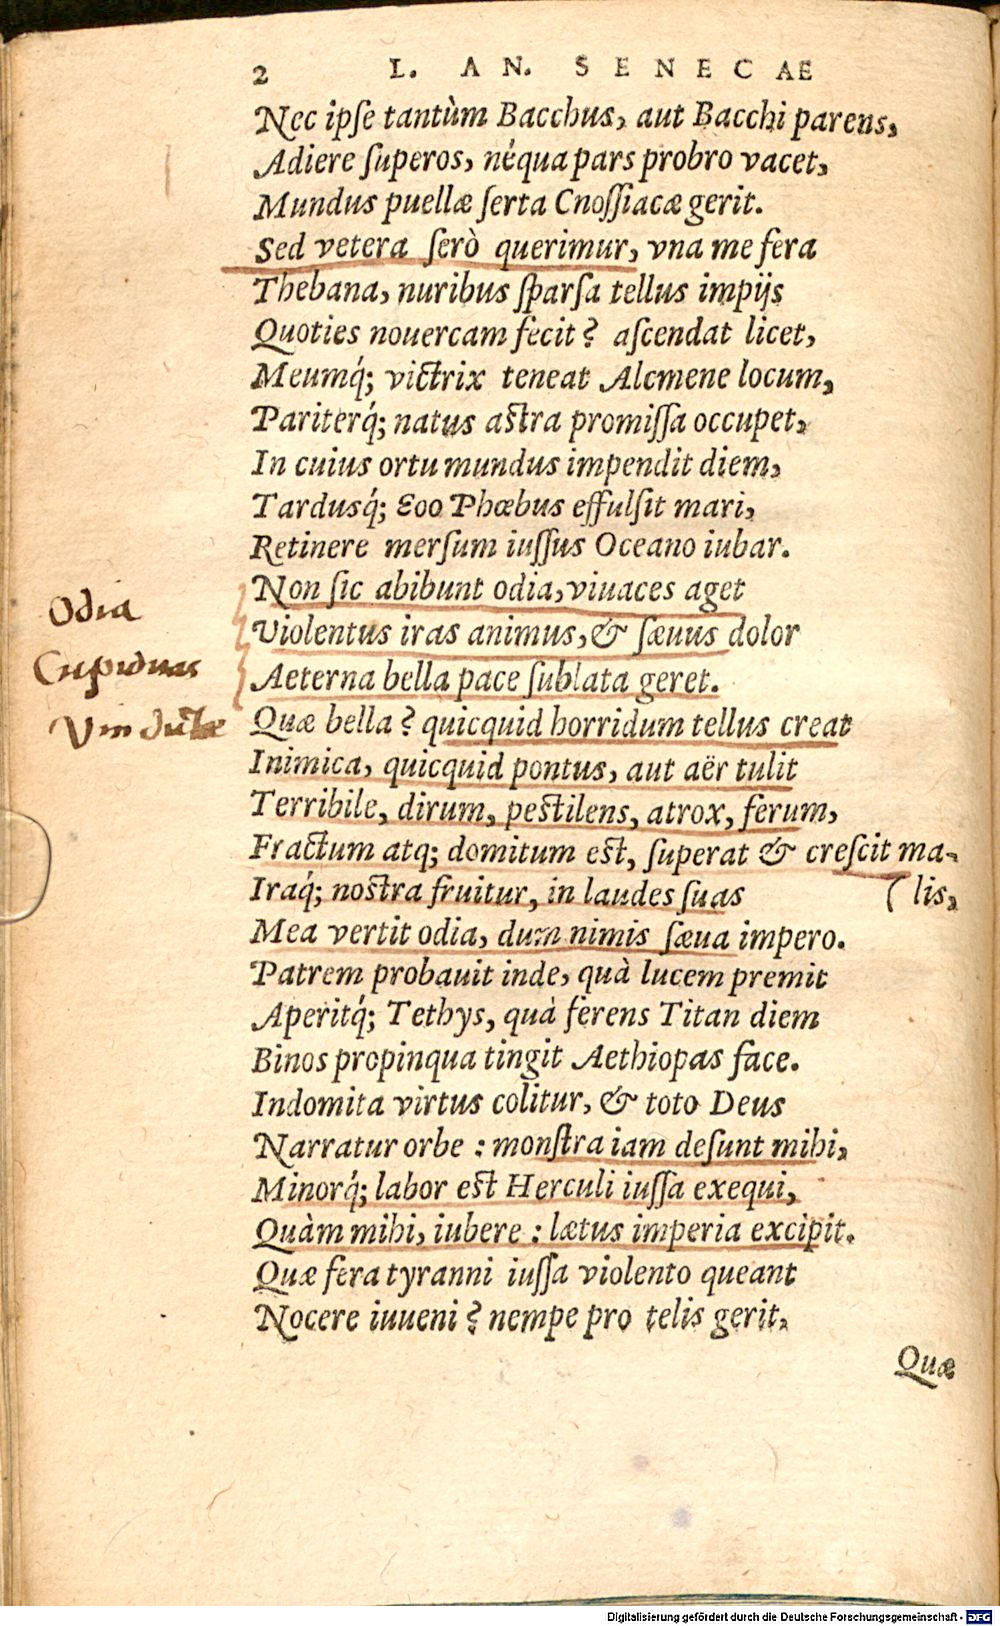 2 L. AN. SENECAE
Nec ipse tantùm Bacchus, aut Bacchi parens,
Adiere superos, néqua pars probro vacet,
Mundus puellæ serta Cnossiacæ gerit.
Sed vetera serò querimur, vna me fera
Thebana, nuribus sparsa tellus impijs
Quoties nouercam fecit? ascendat licet,
Meumq́; victrix teneat Alcmene locum,
Pariterq́; natus astra promissa occupet,
In cuius ortu mundus impendit diem,
Tardusq́; Eoo Phœbus effulsit mari,
Retinere mersum iussus Oceano iubar.
Non sic abibunt odia, viuaces aget
Violentus iras animus, & sæuus dolor
Aeterna bella pace sublata geret.
Quæ bella? quicquid horridum tellus creat
Inimica, quicquid pontus, aut aër tulit
Terribile, dirum, pestilens, atrox, ferum,
Fractum atq; domitum est, superat & crescit ma-
Iraq́; nostra fruitur, in laudes suas (lis,
Mea vertit odia, dum nimis sæua impero.
Patrem probauit inde, quà lucem premit
Aperitq́; Tethys, quà ferens Titan diem
Binos propinqua tingit Aethiopas face.
Indomita virtus colitur, & toto Deus
Narratur orbe : monstra iam desunt mihi,
Minorq́; labor est Herculi iussa exequi,
Quàm mihi, iubere : lætus imperia excipit.
Quæ fera tyranni iussa violento queant
Nocere iuueni? nempe pro telis gerit,
Quæ
Odia
Cupiditas
Vindictæ
Digitalisierung gefördert durch die Deutsche Forschungsgemeinschaft - DFG